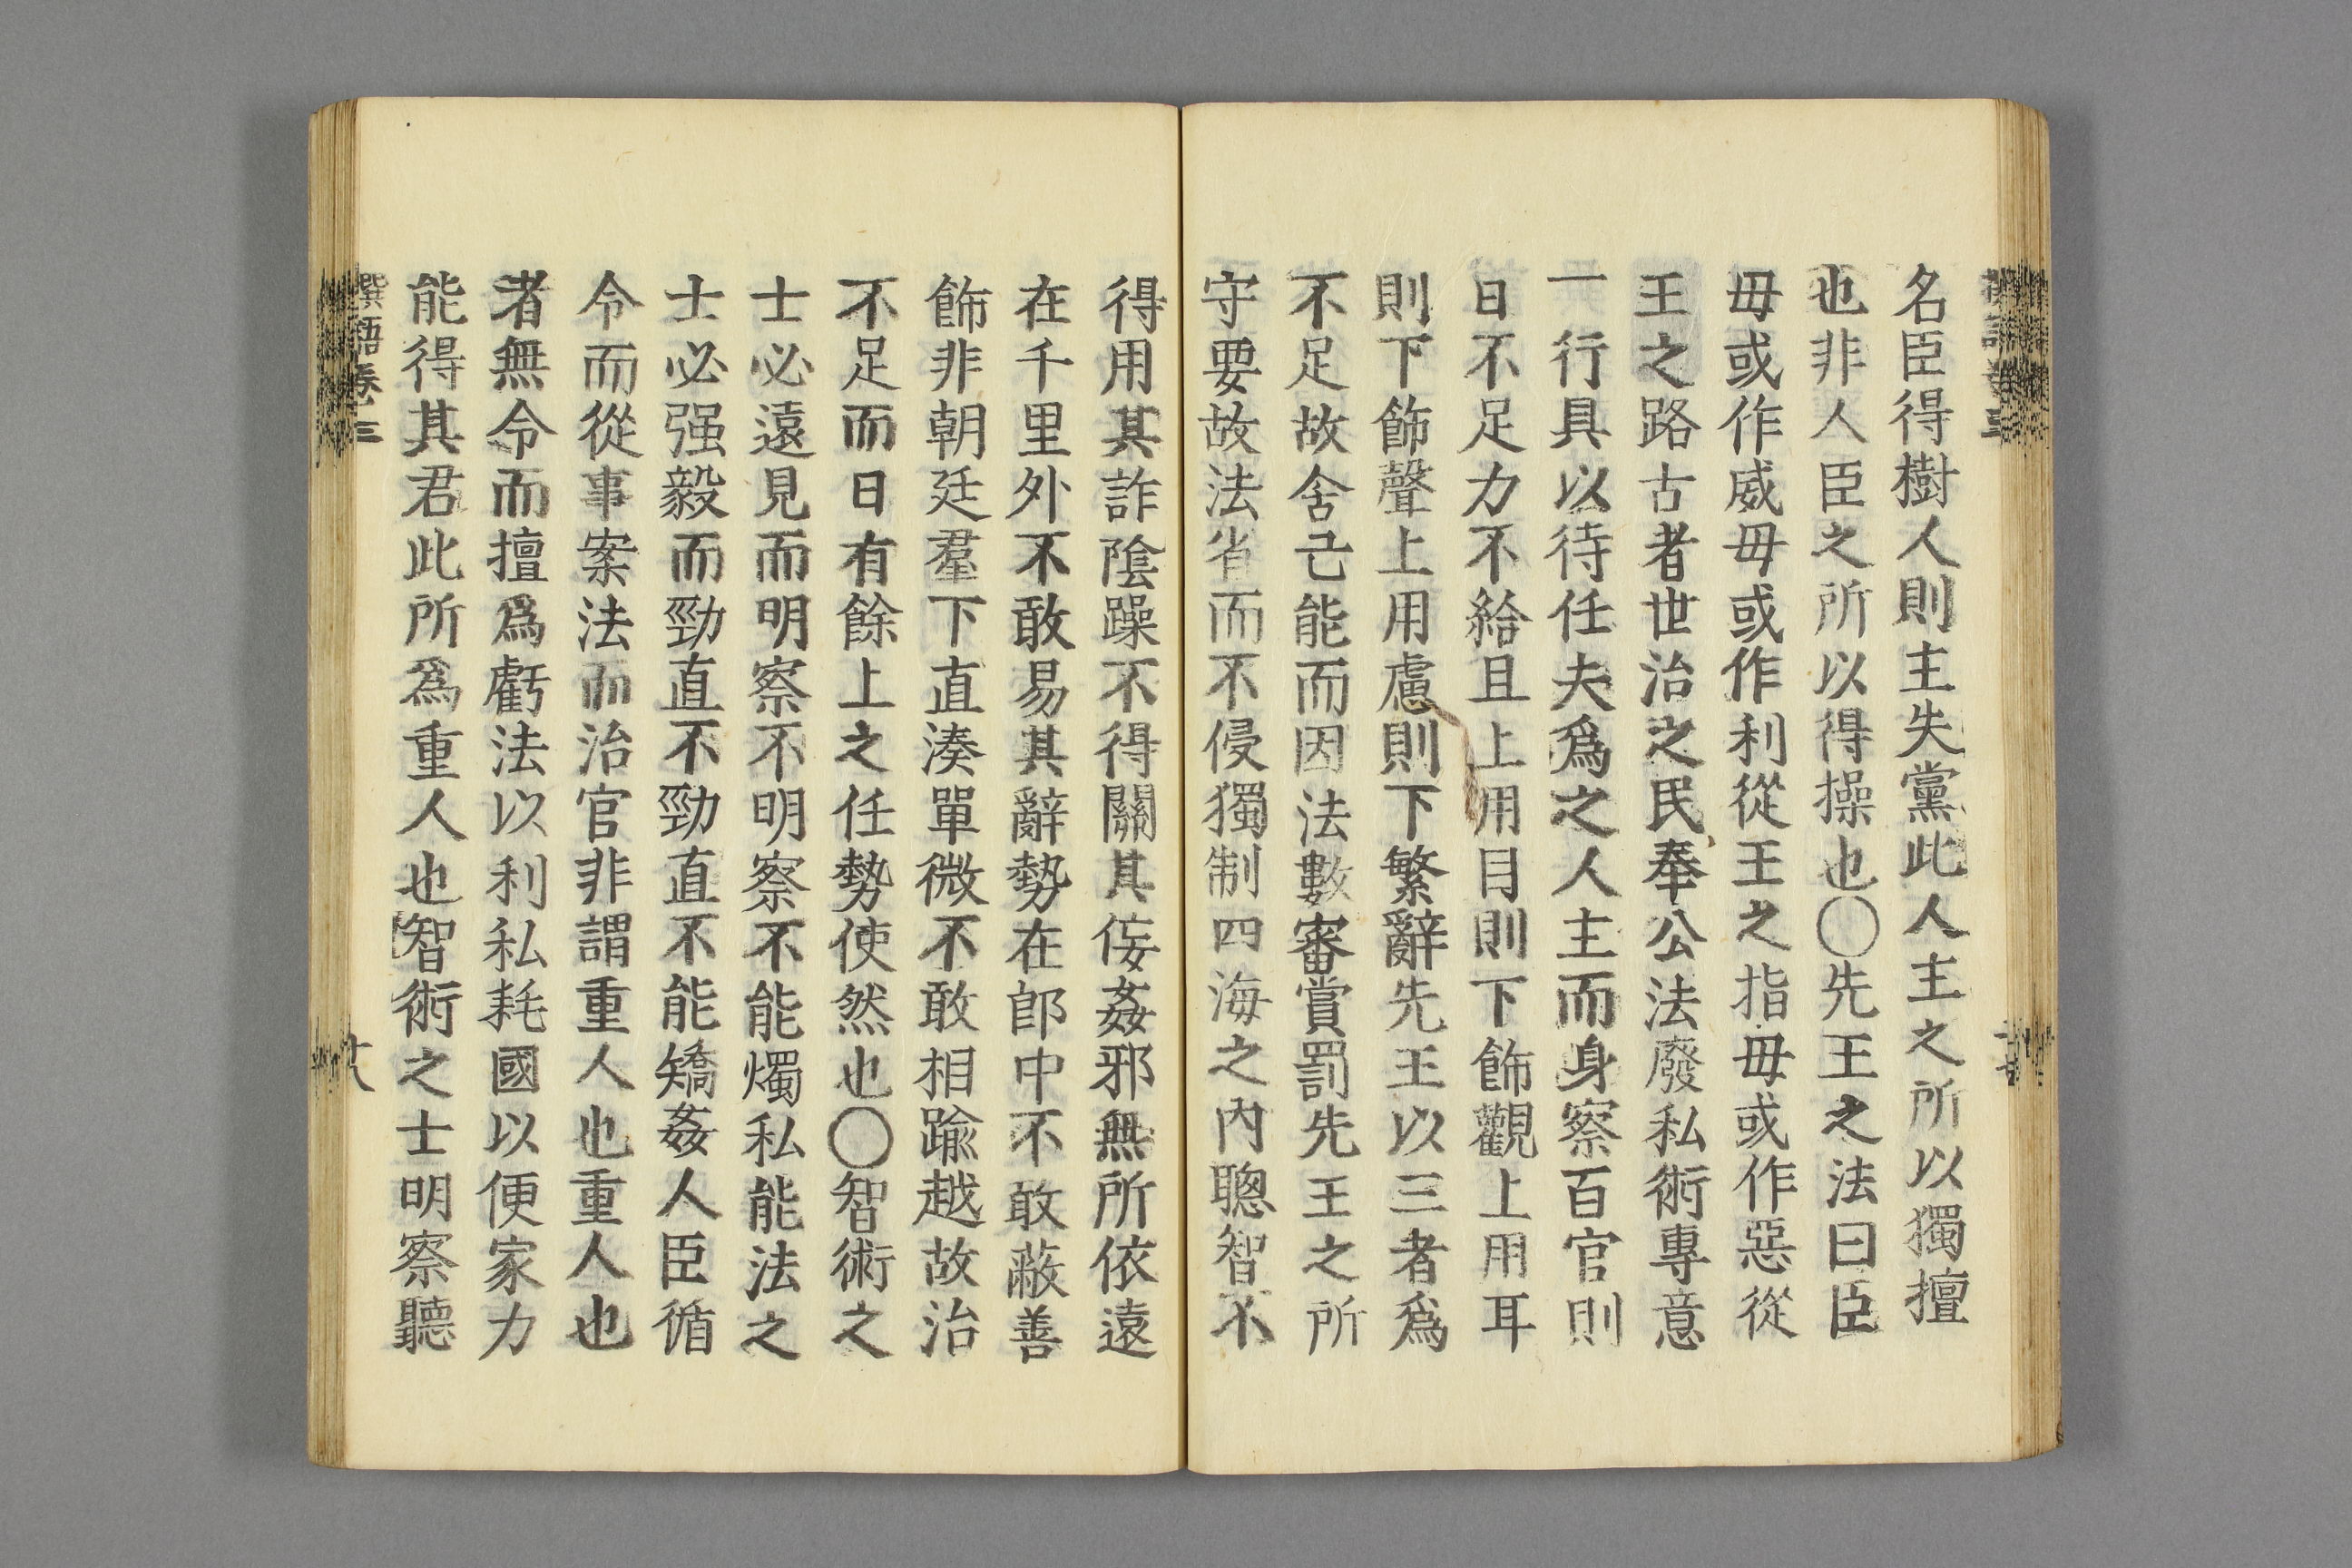 名臣得樹人則主失黨此人主之所以獨擅
也非人臣之所以得操也〇先王之法曰臣
毋或作威毋或作利從王之指毋或作惡從
王之路古者世治之民奉公法廢私術專意
一行具以待任夫爲之人主而身察百官則
日不足力不給且上用目則下飾觀上用耳
則下飾聲上用慮則下繁辭先王以三者爲
不足故舍己能而因法數審賞罰先王之所
守要故法省而不侵獨制四海之內聰智不
得用其詐陰躁不得關其佞姦邪無所依遠
在千里外不敢易其辭勢在郎中不敢蔽善
飾非朝廷羣下直湊單微不敢相踰越故治
不足而日有餘上之任勢使然也〇智術之
士必遠見而明察不明察不能燭私能法之
士必强毅而勁直不勁直不能矯姦人臣循
令而從事案法而治官非謂重人也重人也
者無令而擅爲虧法以利私耗國以便家力
能得其君此所爲重人也智術之士明察聽
撰語卷三
十八